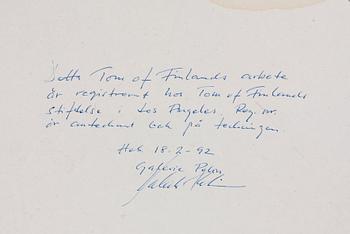 Detta Tom of Finlands arbete
är registrerat hos Tom of Finlands
stiftelse i Los Angeles. Reg.nr.
är antecknat bak på teckningen.
18-2-92
Galerie